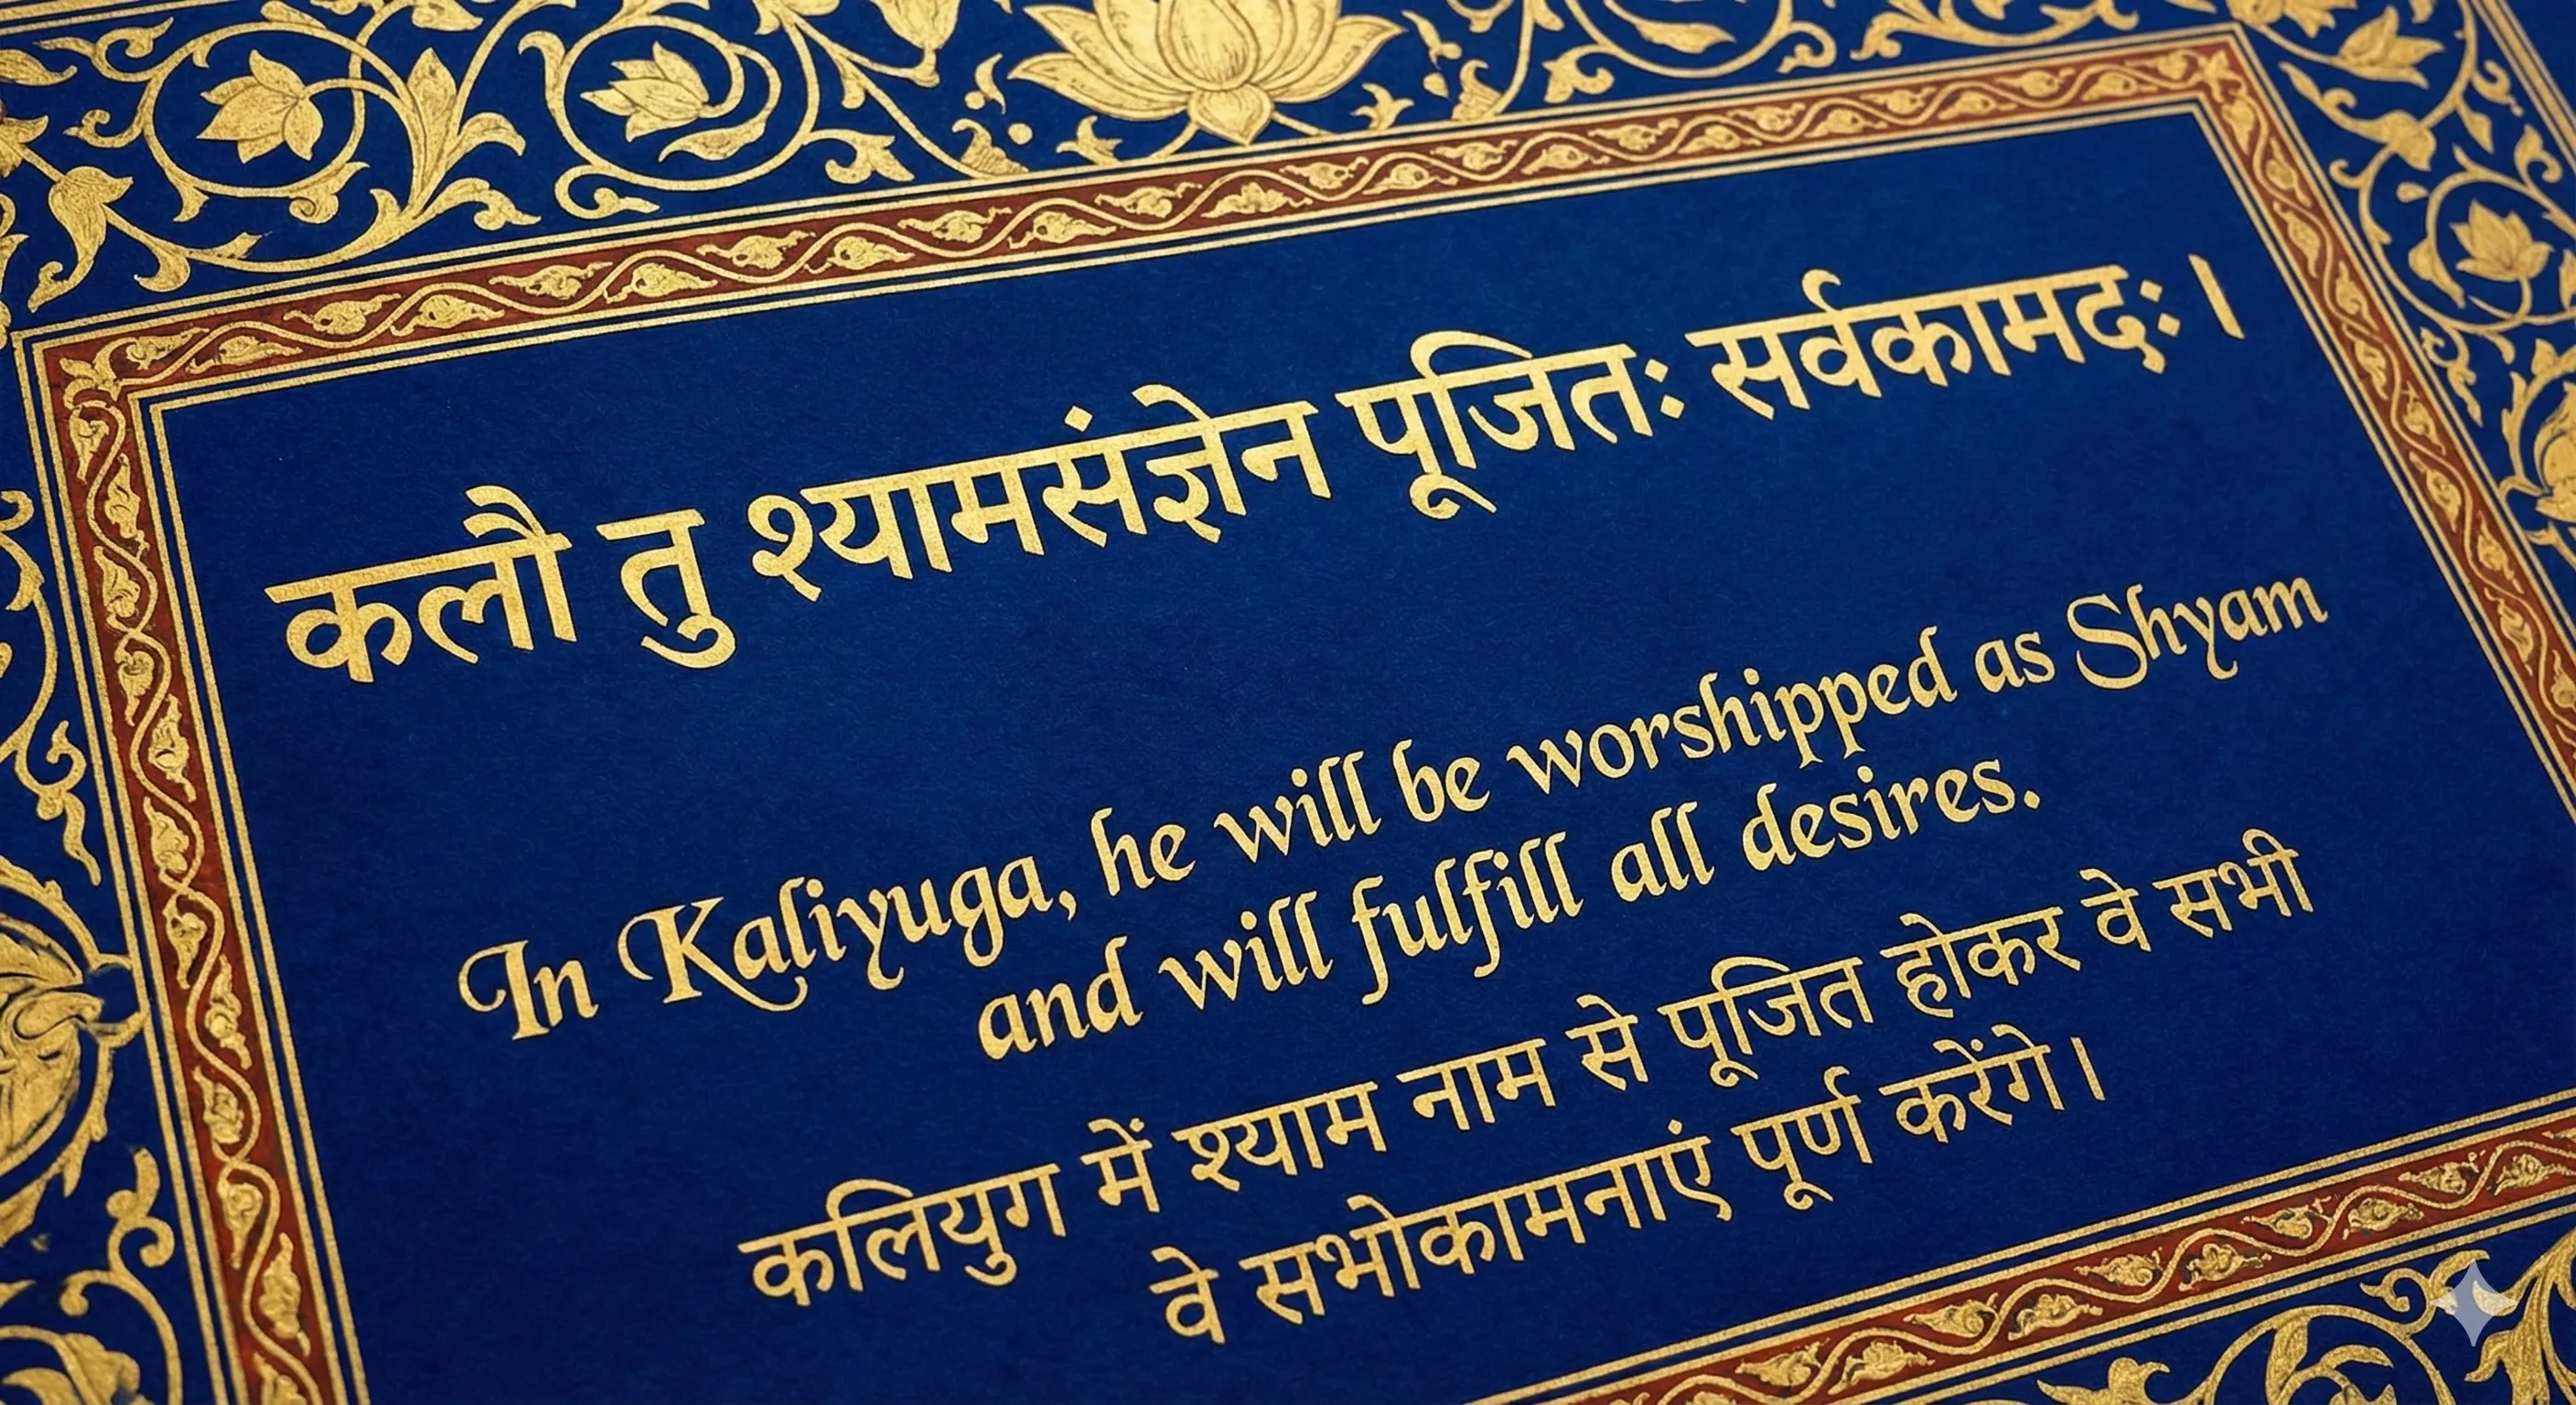 कलौ तु श्यामसंज्ञेन पूजितः सर्वकामदः।
In Kaliyuga, he will be worshipped as Shyam
and will fulfill all desires.
कलियुग में श्याम नाम से पूजित होकर वे सभी
वे सभोकामनाएं पूर्ण करेंगे।